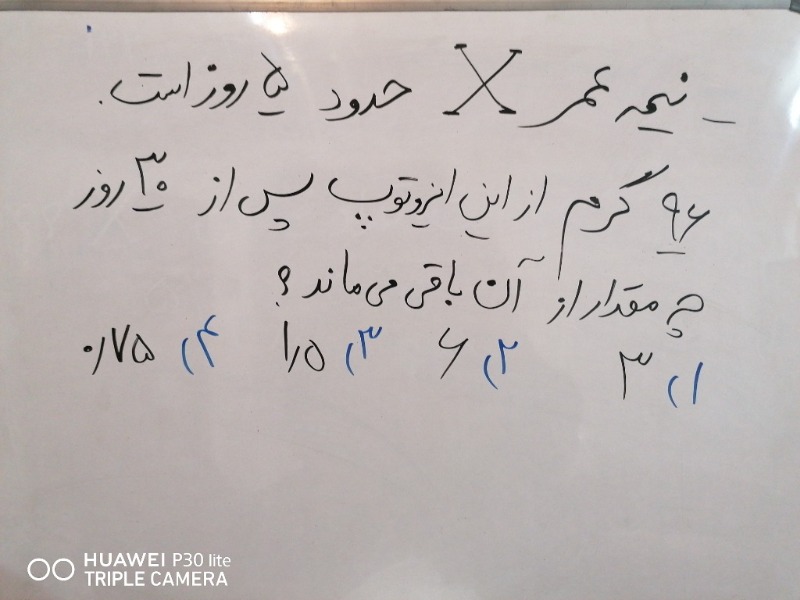 _ نیمه عمر X حدود ۵ روز است.
۹۶ گرم از این ایزوتوپ پس از ۳۰ روز
چه مقدار از آن باقی می‌ماند؟
۱) ۳ ۲) ۶ ۳) ۱/۵ ۴) ۰/۷۵
HUAWEI P30 lite
TRIPLE CAMERA